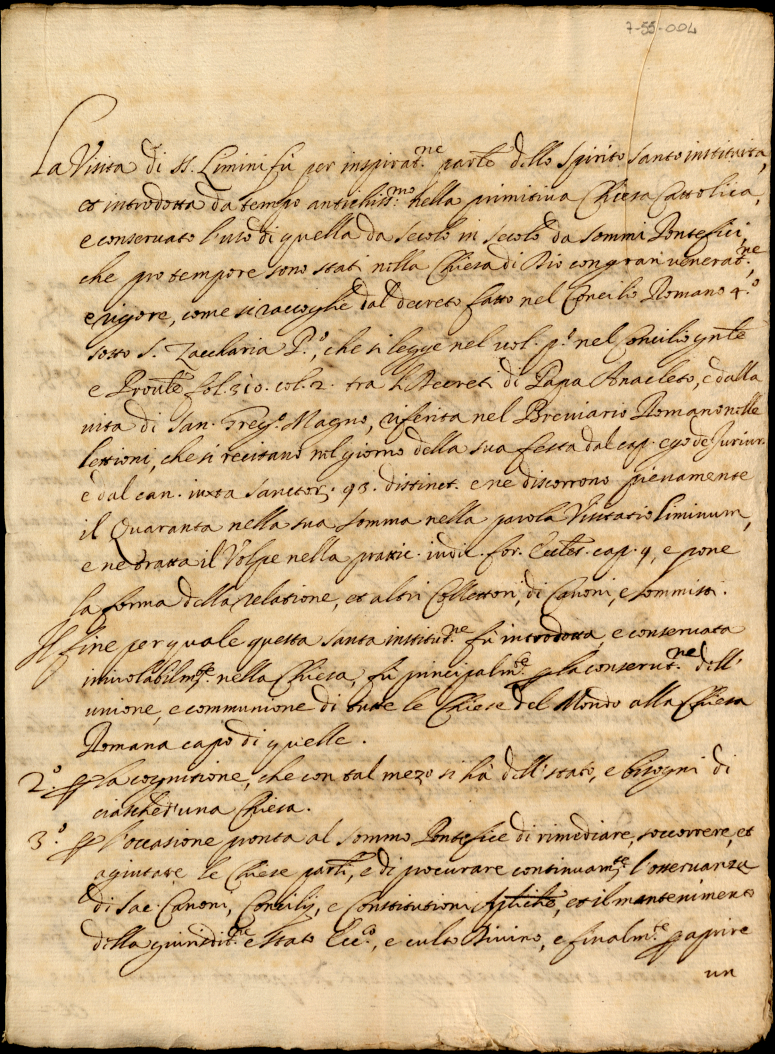 7-55-004
La Visita di SS. Limini fù per inspirat.ne parte dello Spirito Santo instituita,
et introdotta da tempo antichiss.mo nella primitiva Chiesa Cattolica,
e conservato l'uso di quella da secolo in secolo da sommi Pontefici,
che pro tempore sono stati nella Chiesa di Dio con gran venerat.ne,
e vigore, come si raccoglie dal decreto fatto nel Concilio Romano 4.o
sotto S. Zaccharia P.o, che si legge nel vol. p.o nel Concilio gnle
e Provle fol. 310. col. 2. tra li Decreti di Papa Anacleto, e dalla
vita di San. Greg.o Magno, riferita nel Breviario Romano nelle
lettioni, che si recitano nel giorno della sua festa dal cap. ego de Jurejur.
e dal can. iuxta sanctor. 93. distinct. e ne discorrono pienamente
il Quaranta nella sua somma nella parola Visitatio liminum,
e ne tratta il Volpe nella prattic. iudic. for. Eccles. cap. 9, e pone
la forma della relatione, et altri Collettori, di Canoni, e sommisti.
Il fine per quale questa santa institut.ne fù introdotta, e conservata
inviolabilm.te nella Chiesa, fù principalm.te p la conservat.ne dell'
unione, e communione di tutte le Chiese del Mondo alla Chiesa
Romana capo di quelle.
2.o p la cognitione, che con tal mezo si hà dell' stato, e bisogni di
ciasched'una Chiesa.
3.o p l'occasione pronta al sommo Pontefice di rimediare, soccorrere, et
agiutare le Chiese parti, e di procurare continuam.te l'osservanza
di Sac. Canoni, Concilij, e Constitutioni Apliche, et il mantenimento
della giurisdit.ne e stato Ecc.co, e culto Divino, e finalm.te p aprire
un